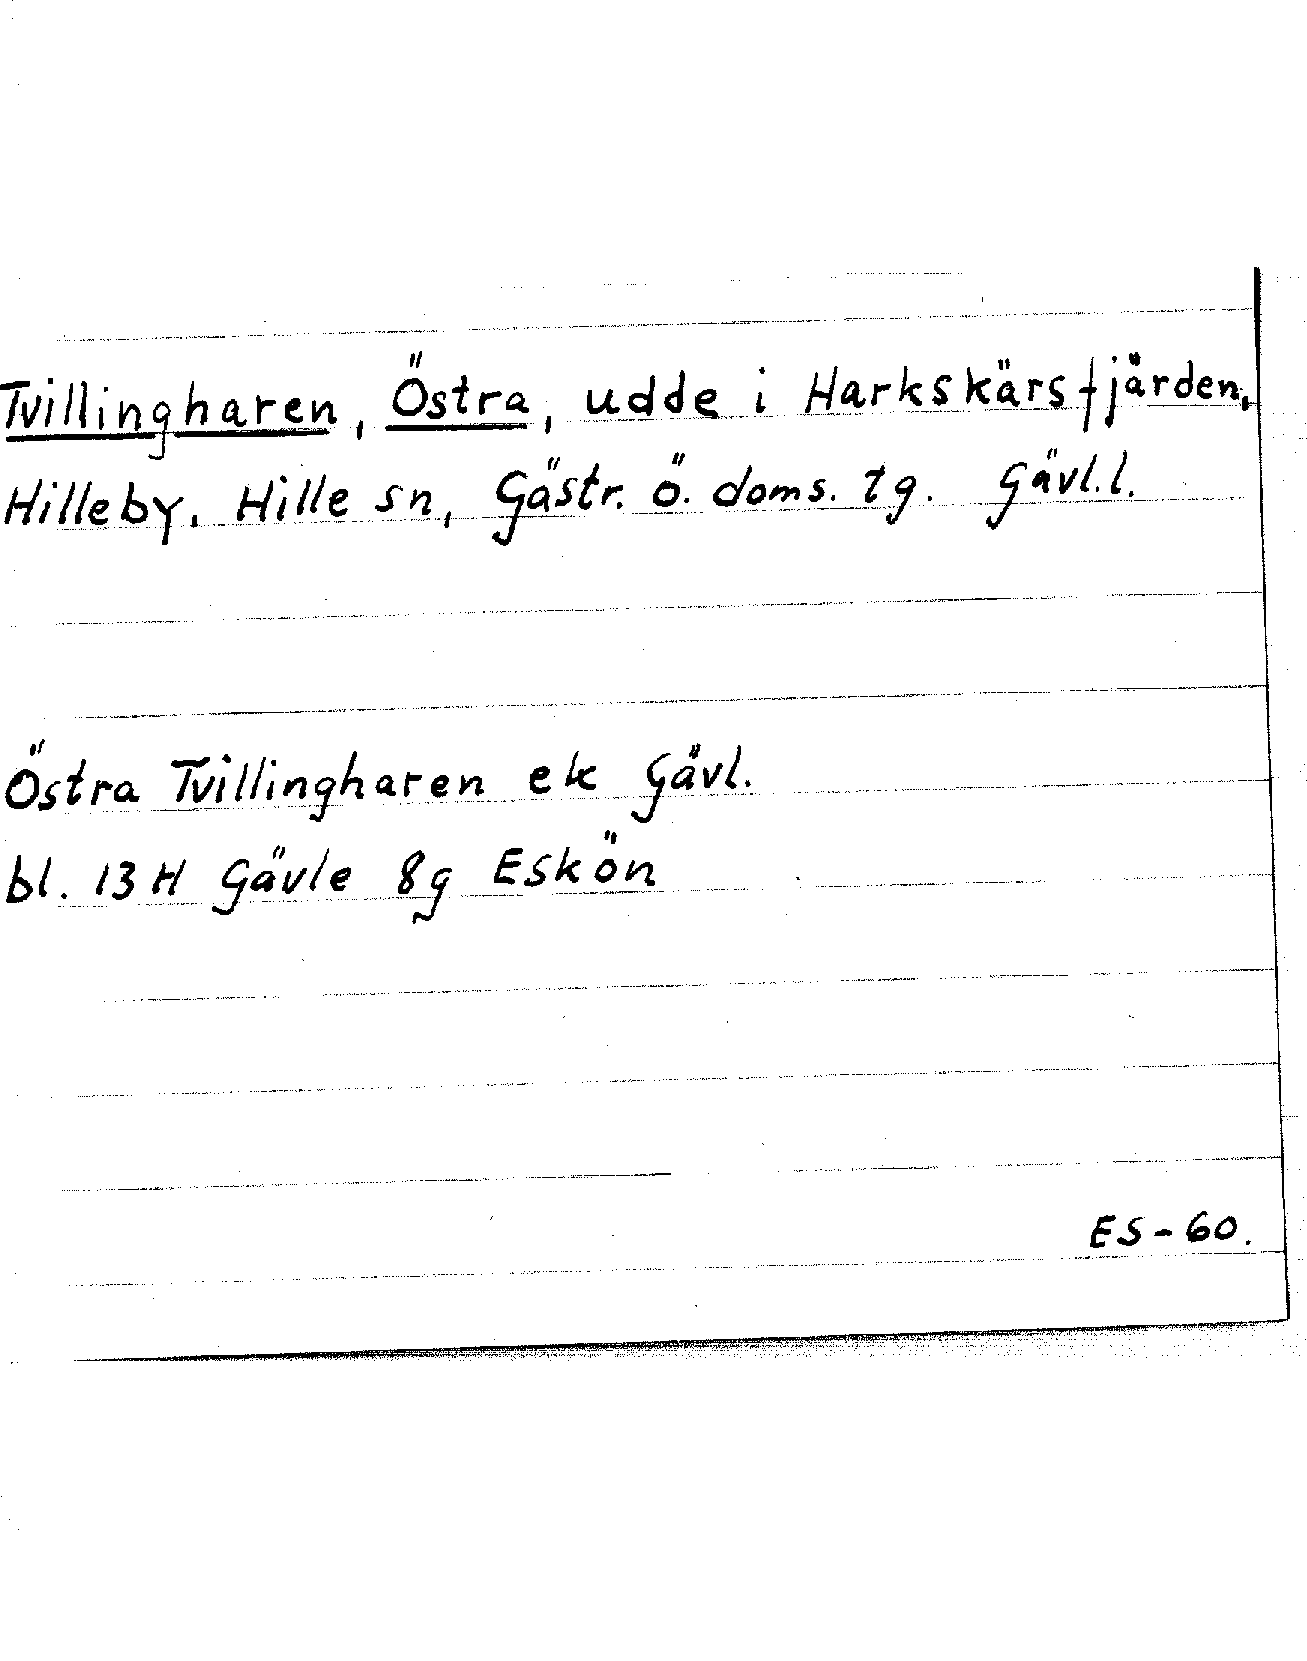 Tvillingharen, Östra, udde i Harkskärsfjärden,
Hilleby. Hille sn, Gästr. ö. doms. tg. Gävl.l.
Östra Tvillingharen ek Gävl.
bl. 13 H Gävle 8g Eskön
ES-60.